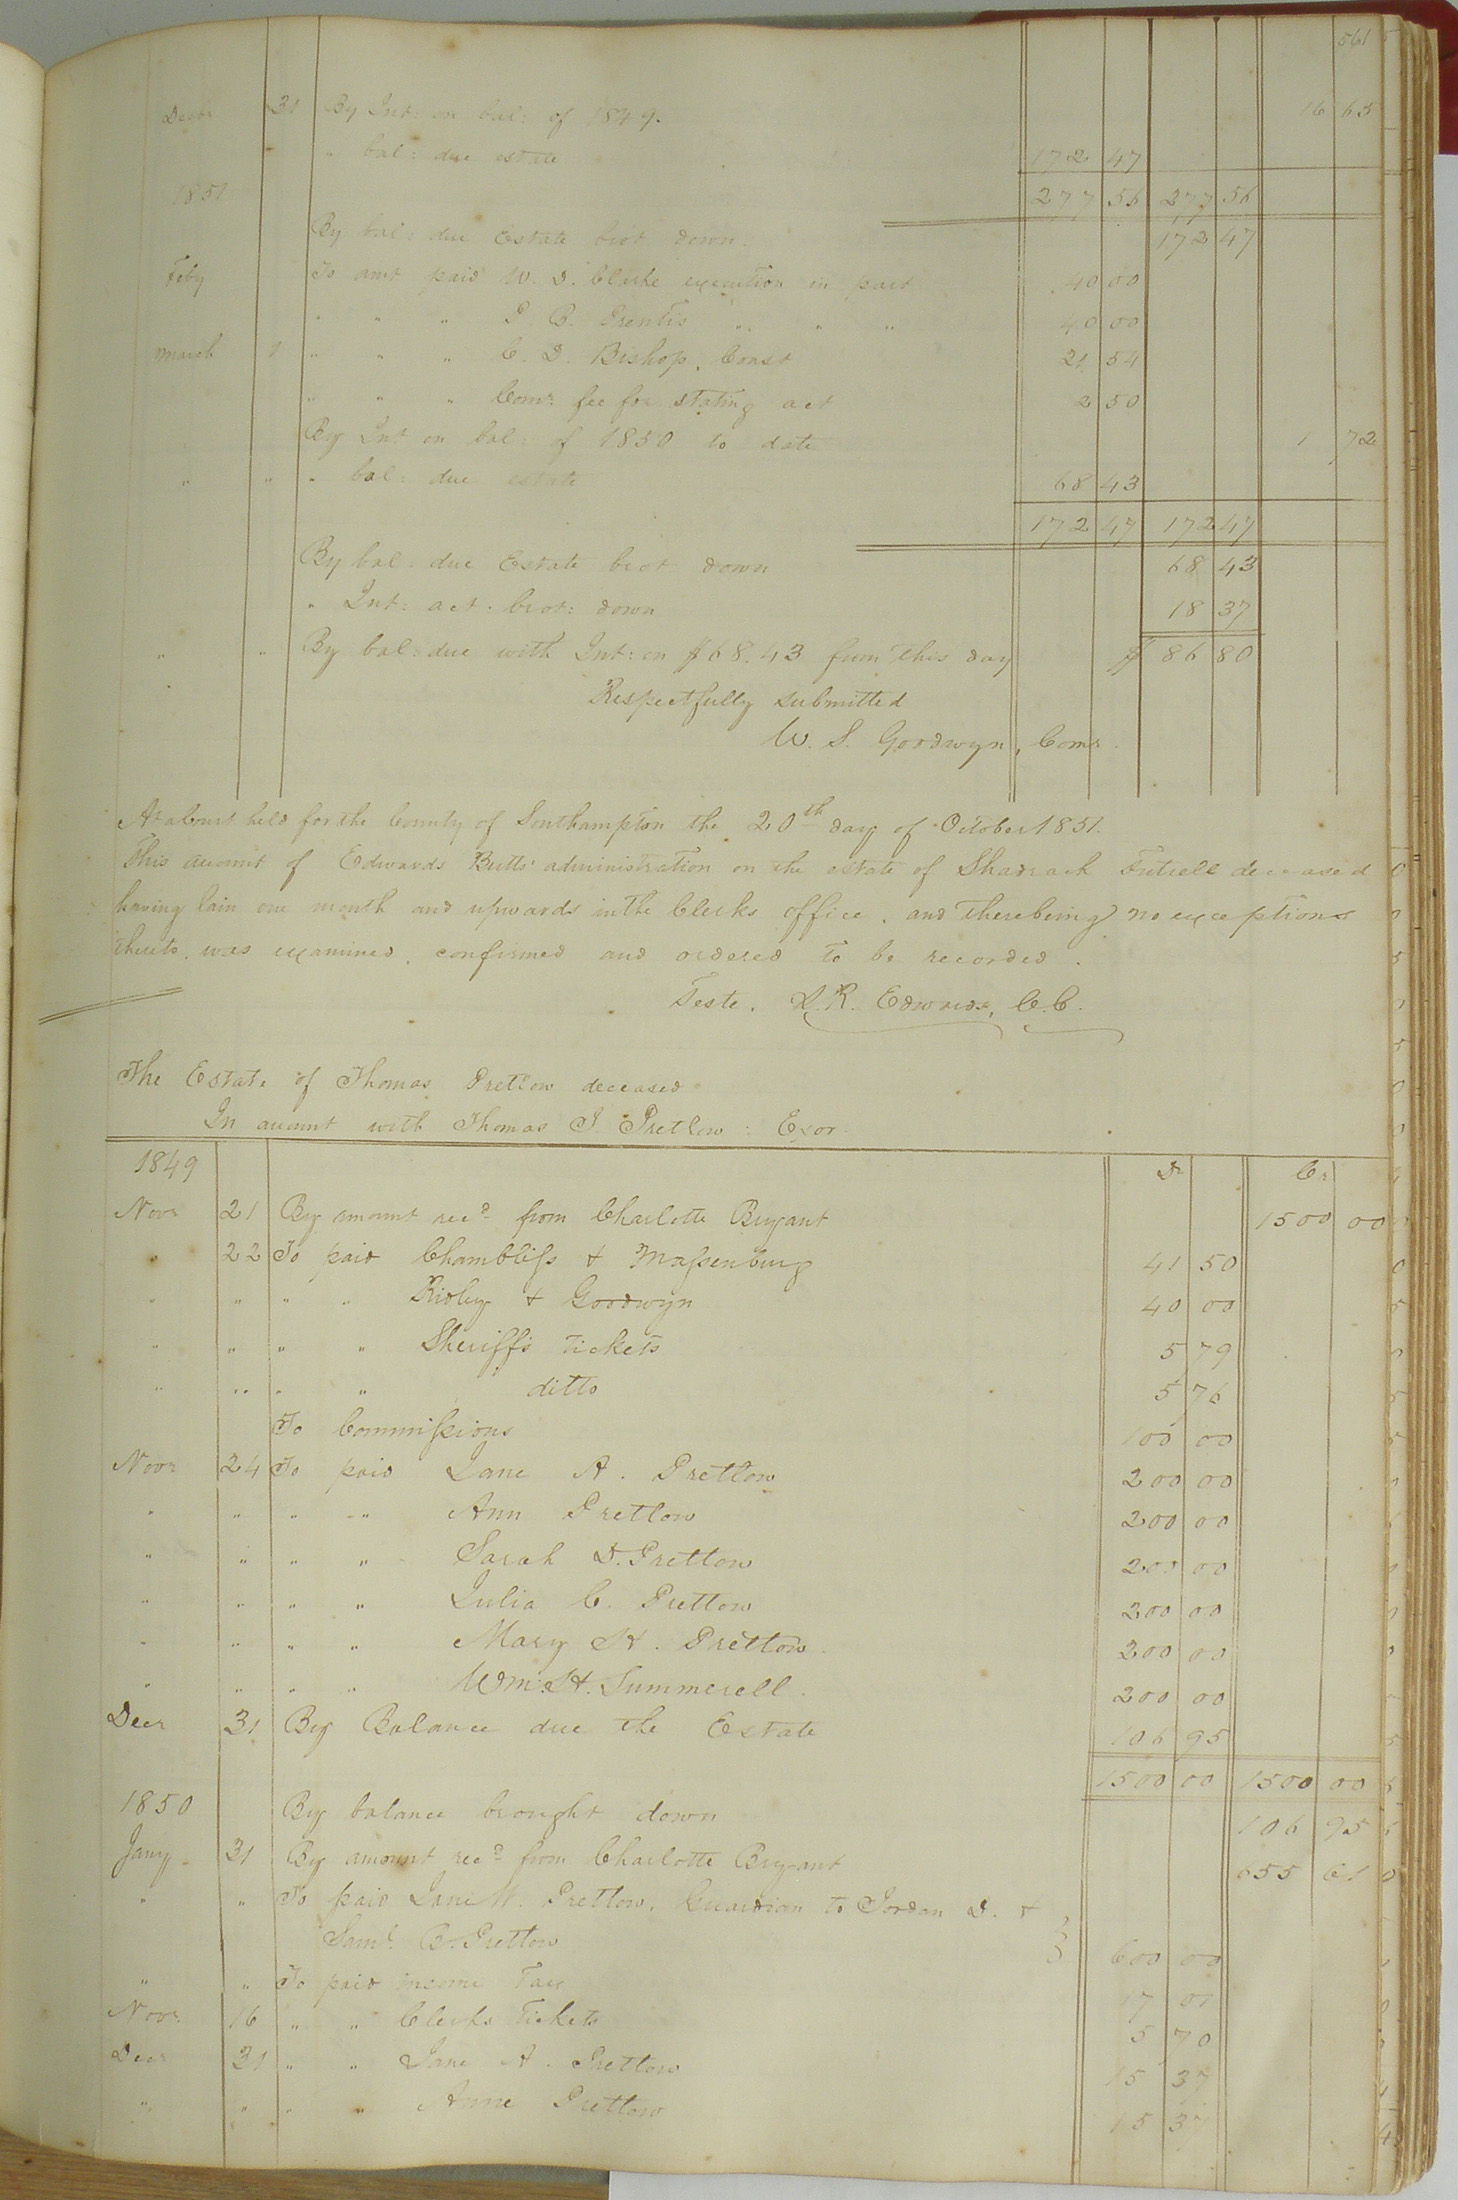 561
Decbr 31 By Int: on bal: of 1849. 16 65
" bal: due estate 172 47
1851 277 56 277 56
By bal: due Estate brot down. 172 47
Feby To amt paid W. D. Clarke execution in part 40 00
" " " P. B. Prentis " " " 40 00
March 1 " " " C. D. Bishop, Const 21 54
" " " Comr. fee for stating act 2 50
By Int on bal: of 1850 to date 1 72
" " " bal: due estate 68 43
172 47 172 47
By bal: due Estate brot down 68 43
" Int: act. brot: down 18 37
" " By bal: due with Int: on $68.43 from this day $ 86 80
Respectfully submitted
W. S. Goodwyn, Comr.
At a Court held for the County of Southampton the 20th day of October 1851.
This account of Edwards Butts' administration on the estate of Shadrack Futrell deceased
having lain one month and upwards in the Clerks office, and there being no exceptions
thereto, was examined, confirmed and ordered to be recorded.
Teste, L. R. Edwards, C.C.
The Estate of Thomas Pretlow deceased
In account with Thomas J. Pretlow: Exor.
1849 Dr Cr
Novr 21 By amount recd from Charlotte Bryant 1500 00
" 22 To paid Chambliss & Massenburg 41 50
" " " " Ridley & Goodwyn 40 00
" " " " Sheriffs tickets 5 79
" " " " ditto 5 76
To Commissions 100 00
Novr 24 To paid Jane A. Pretlow 200 00
" " " " Ann Pretlow 200 00
" " " " Sarah D. Pretlow 200 00
" " " " Julia C. Pretlow 200 00
" " " " Mary H. Pretlow. 200 00
" " " " Wm. H. Summerell. 200 00
Decr 31 By Balance due the Estate 106 95
1500 00 1500 00
1850 By balance brought down 106 95
Jany 31 By amount recd from Charlotte Bryant 655 61
" " To paid Jane W. Pretlow, Guardian to Jordan D. &
Saml. B. Pretlow 600 00
" " To paid income Tax 17 01
Novr. 16 " " Clerks Tickets 5 70
Decr 31 " " Jane A. Pretlow 15 37
" " " " Anne Pretlow 15 37